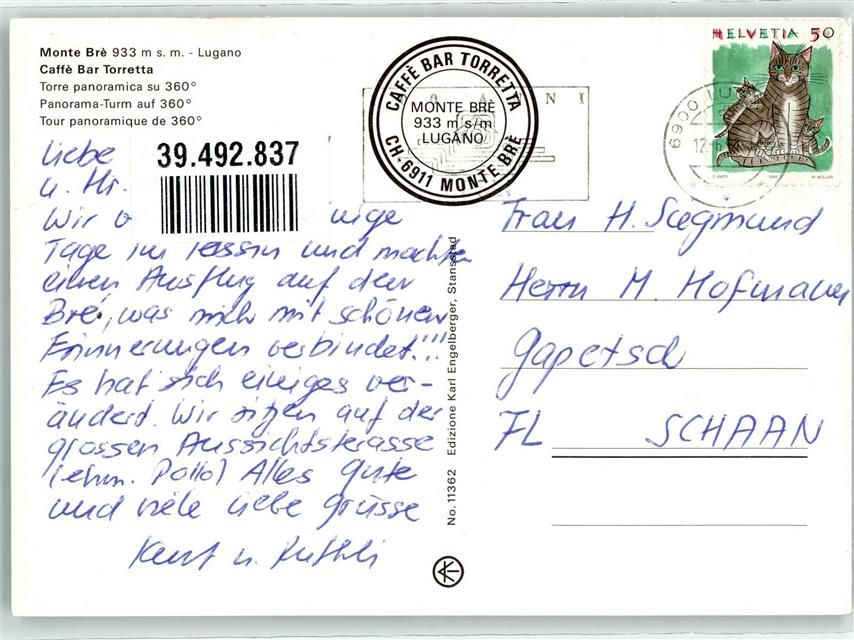 Monte Brè 933 m s. m. - Lugano
Caffè Bar Torretta
Torre panoramica su 360°
Panorama-Turm auf 360°
Tour panoramique de 360°
39.492.837
Liebe
u. Hr.
Wir
Tage im Tessin und machten
einen Ausflug auf den
Brè, was mich mit schönen
Erinnerungen verbindet!!!
Es hat sich einiges ver-
ändert. Wir sitzen auf der
grossen Aussichtsterasse
(ehm. Pollo) Alles gute
und viele liebe grüsse
Kurt u. Ruthli
CAFFÈ BAR TORRETTA
MONTE BRÈ
933 m s/m
LUGANO
CH-6911 MONTE BRÈ
No. 11362 Edizione Karl Engelberger, Stansstad
HELVETIA 50
6900 LU
Frau H. Siegmund
Herrn M. Hofmauer
Gapetsch
FL SCHAAN